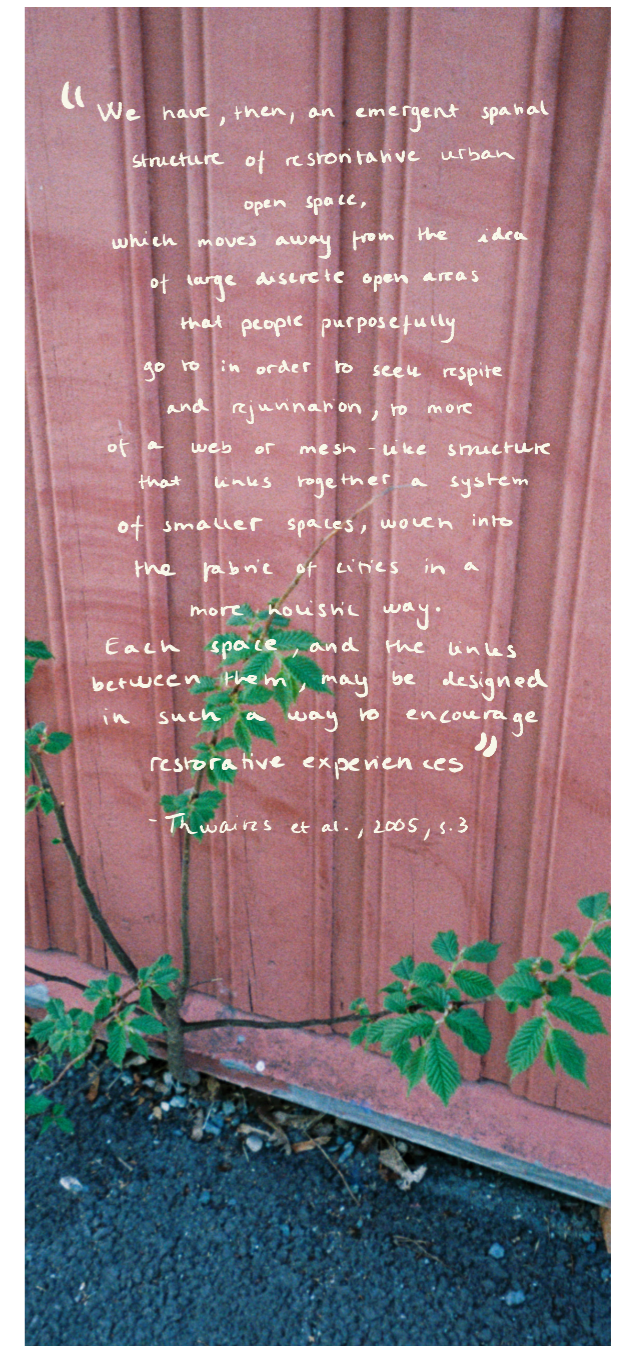 “We have, then, an emergent spatial
structure of restoritative urban
open space,
which moves away from the idea
of large discrete open areas
that people purposefully
go to in order to seek respite
and rejuvination, to more
of a web or mesh-like structure
that links together a system
of smaller spaces, woven into
the fabric of cities in a
more holistic way.
Each space, and the links
between them, may be designed
in such a way to encourage
restorative experiences”
- Thwaites et al., 2005, s.3